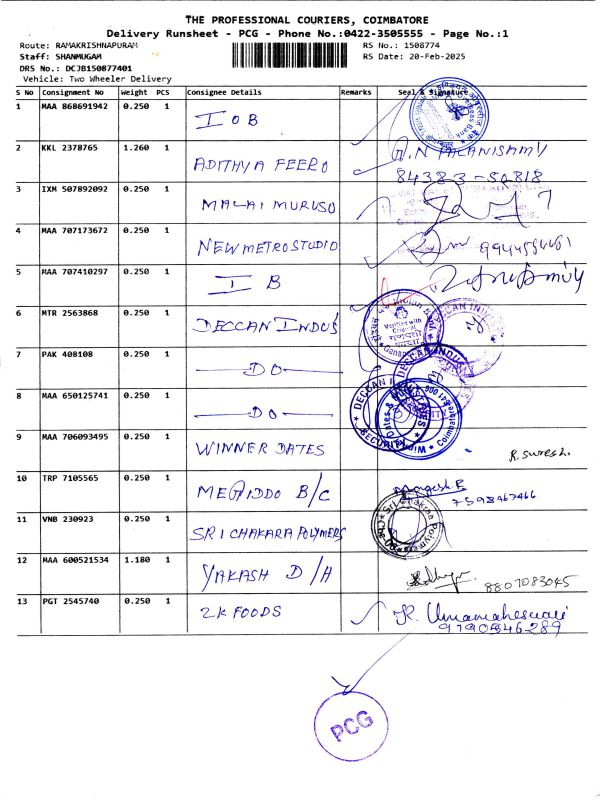 THE PROFESSIONAL COURIERS, COIMBATORE
Delivery Runsheet - PCG - Phone No.:0422-3505555 - Page No.:1
Route: RAMAKRISHNAPURAM RS No.: 1508774
Staff: SHANMUGAM RS Date: 20-Feb-2025
DRS No.: DCJB150877401
Vehicle: Two Wheeler Delivery
S No Consignment No Weight PCS Consignee Details Remarks Seal & Signature
1 MAA 868691942 0.250 1 IOB
2 KKL 2378765 1.260 1 ADITHYA FEERO R.N PALANISAMY
84383-50818
3 IXM 507892092 0.250 1 MALAI MURUSO
4 MAA 707173672 0.250 1 NEWMETROSTUDIO
5 MAA 707410297 0.250 1 I B
6 MTR 2563868 0.250 1 DECCAN INDUS
7 PAK 408108 0.250 1 —DO—
8 MAA 650125741 0.250 1 —DO—
9 MAA 706093495 0.250 1 WINNER DATES R. Suresh.
10 TRP 7105565 0.250 1 MEGIDDO B/C Magesh
7598467466
11 VNB 230923 0.250 1 SRI CHAKARA POLYMERS
Sri Chakraa Polymers
12 MAA 600521534 1.180 1 YAKASH D/H 8807083045
13 PGT 2545740 0.250 1 2K FOODS K. Umamaheswari
9790546289
PCG